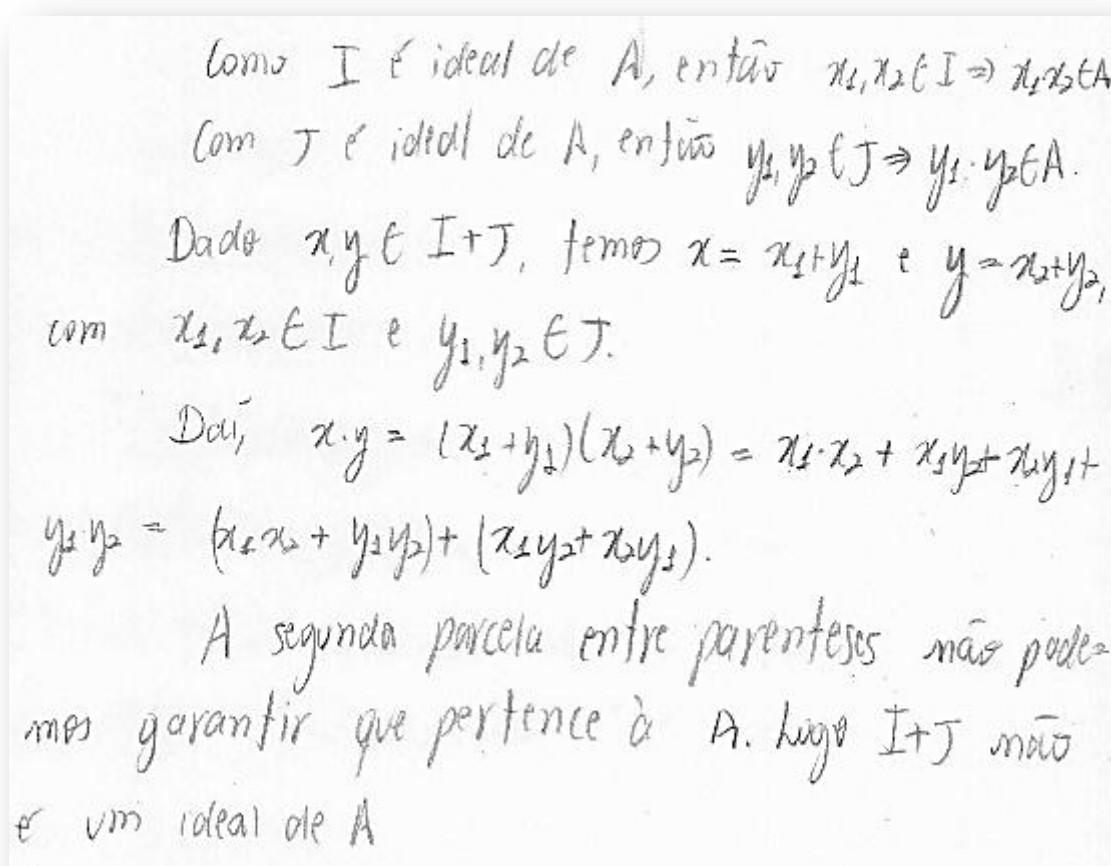 Como I é ideal de A, então x₁,x₂ ∈ I ⇒ x₁x₂ ∈ A
Com J é ideal de A, então y₁,y₂ ∈ J ⇒ y₁·y₂ ∈ A.
Dado x,y ∈ I+J, temos x = x₁+y₁ e y = x₂+y₂,
com x₁,x₂ ∈ I e y₁,y₂ ∈ J.
Daí, x·y = (x₁+y₁)(x₂+y₂) = x₁·x₂ + x₁y₂+ x₂y₁+
y₁·y₂ = (x₁x₂ + y₁y₂)+ (x₁y₂+ x₂y₁).
A segunda parcela entre parenteses não pode=
mos garantir que pertence à A. Logo I+J não
é um ideal de A